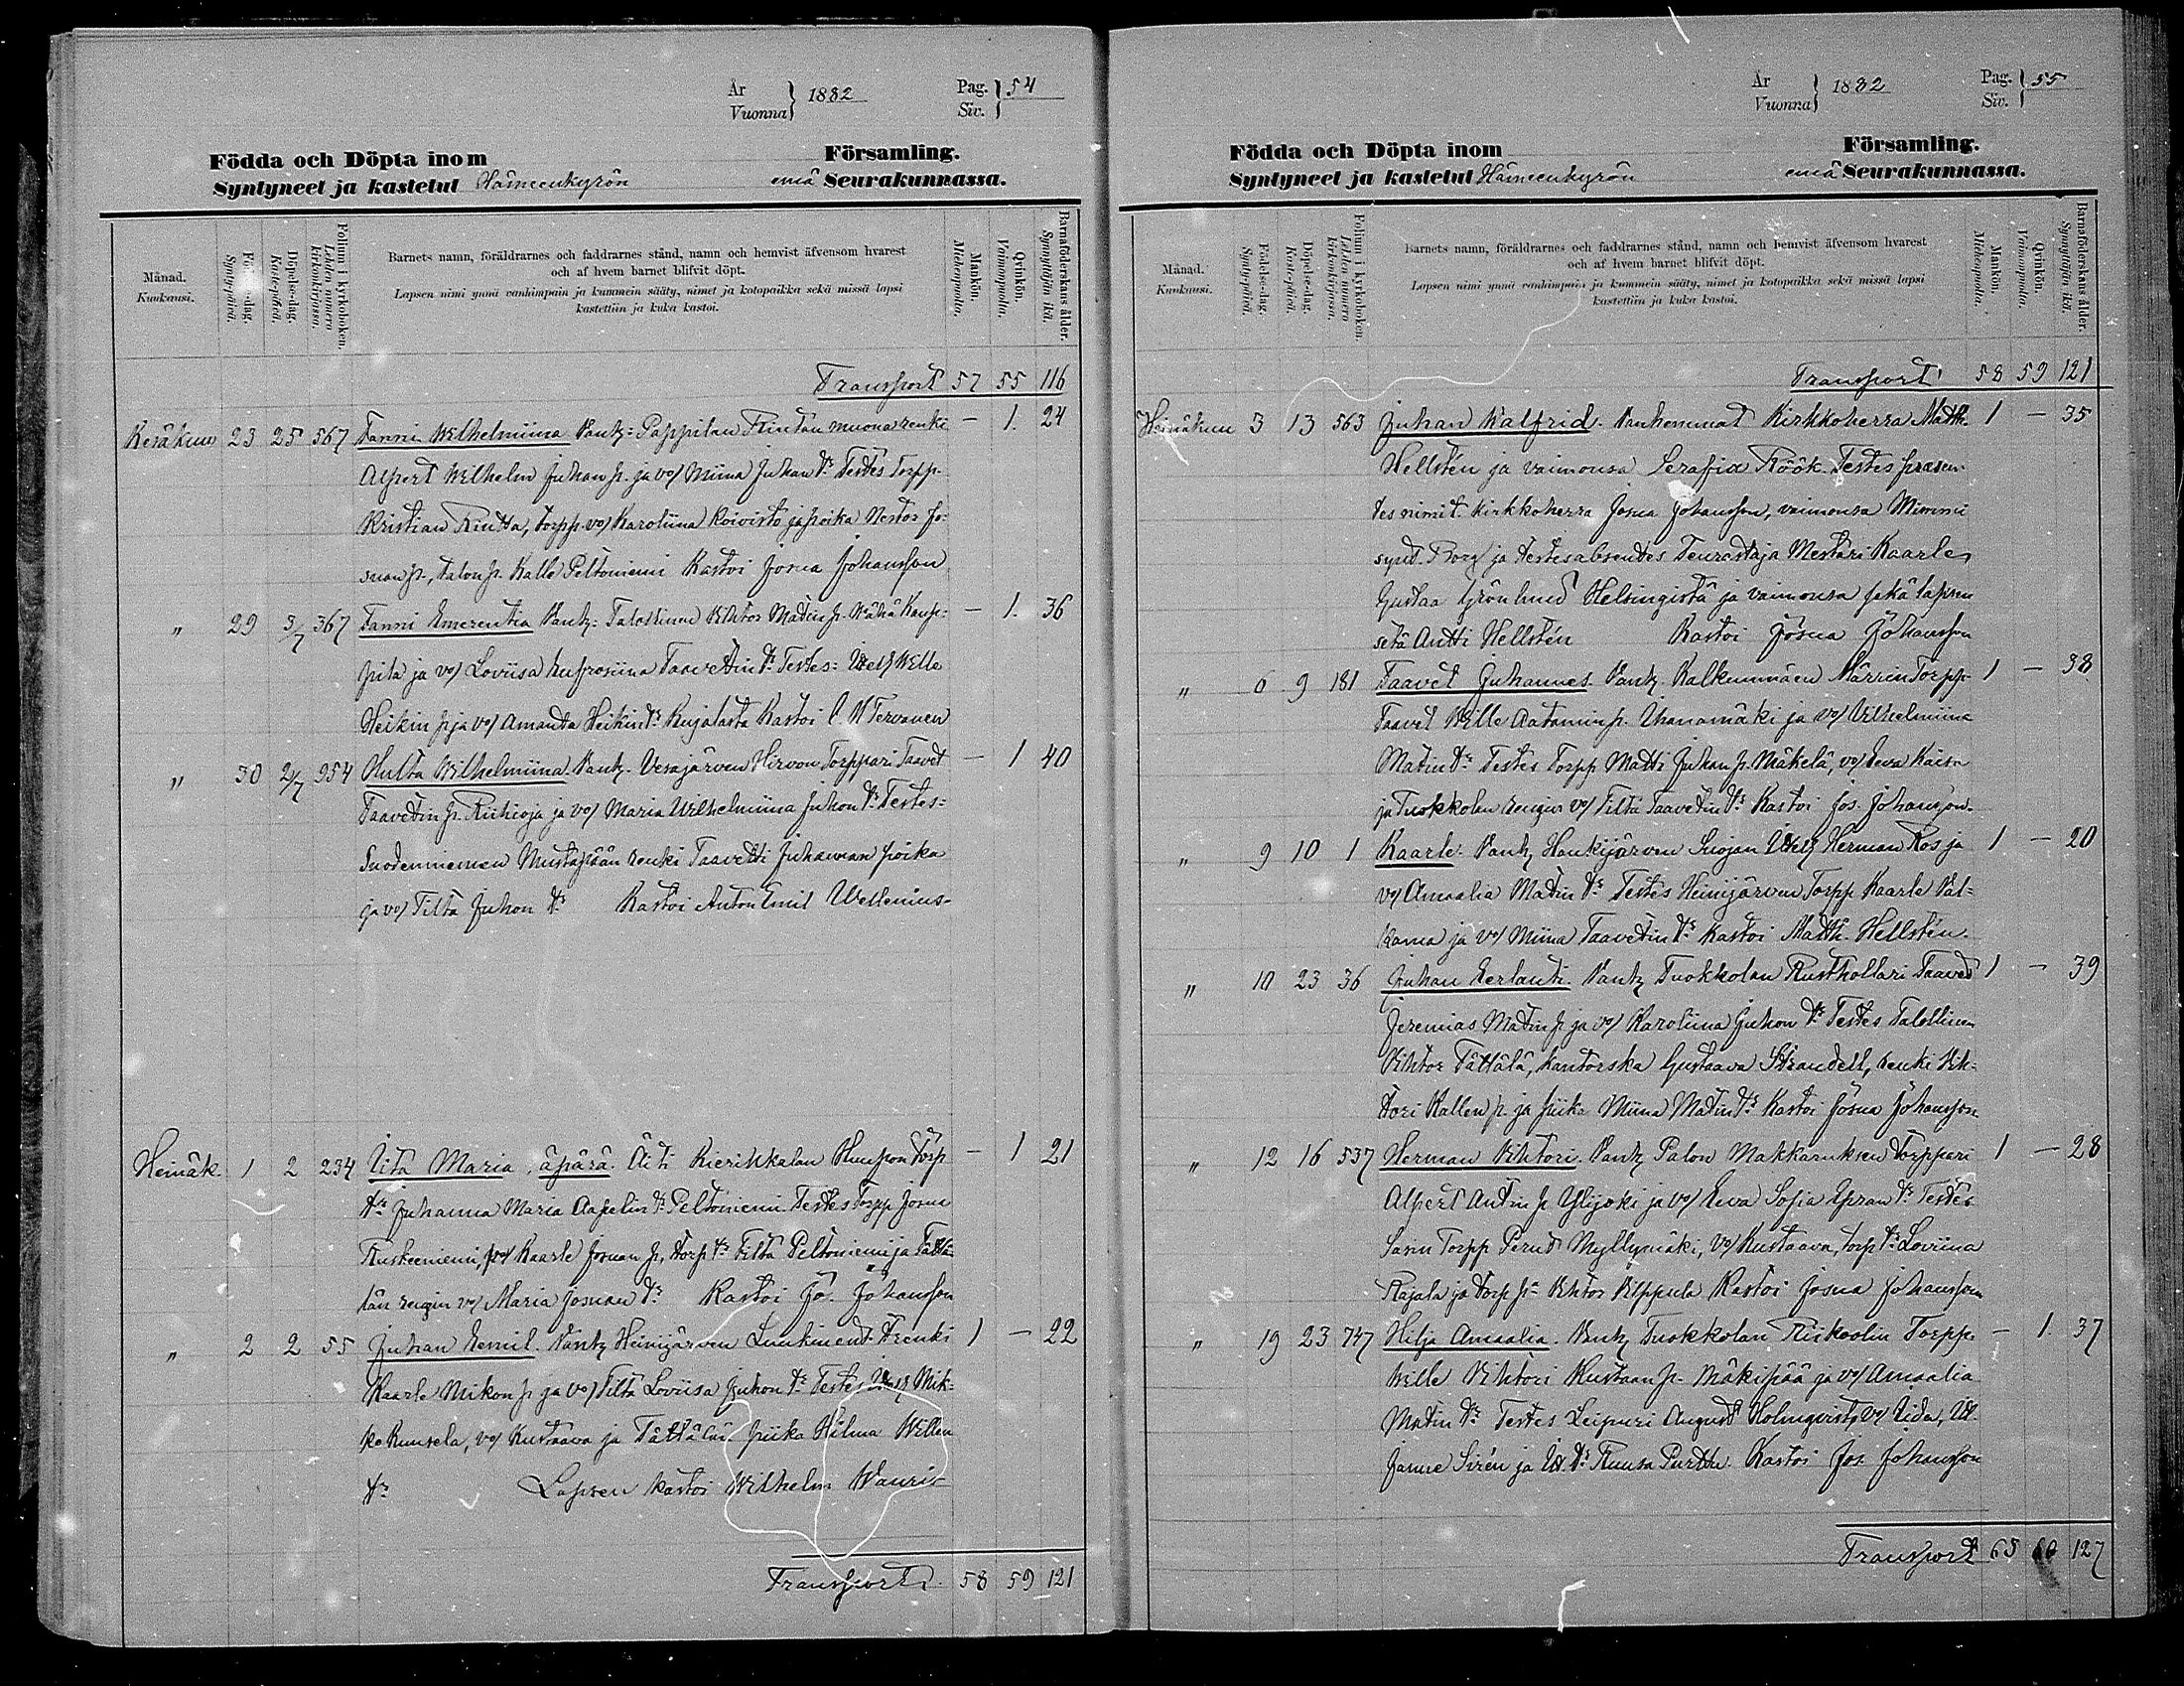 År
Vuonna } 1882
Pag.
Siv. } 54
Födda och Döpta inom Församling.
Syntyneet ja kastetut Hämeenkyrön emä Seurakunnassa.
Månad.
Kuukausi.
Födelse-dag.
Syntypäivä.
Döpelse-dag.
Kastepäivä.
Folium i kyrkoboken.
Lehden numero kirkonkirjassa.
Barnets namn, föräldrarnes och faddrarnes stånd, namn och hemvist äfvensom hvarest
och af hvem barnet blifvit döpt.
Lapsen nimi ynnä vanhimpain ja kummein sääty, nimet ja kotopaikka sekä missä lapsi
kastettiin ja kuka kastoi.
Mankön.
Miehenpuolia.
Qvinkön.
Vaimonpuolia.
Barnaföderskans ålder.
Synnyttäjän ikä.
Transport 57 55 116
Kesäkuu 23 25 567 Fanni Wilhelmiina Vanh: Pappilan Rintan muonarenki — 1. 24
Alpert Wilhelm Juhan p. ja vo/ Miina Juhan tr Testes Torpp.
Kristian Rintta, torpp. vo/ Karoliina Koivisto ja poika Nestor Jo-
suan p., talon p. Kalle Peltoniemi Kastoi Josua Johansson
„ 29 3/7 367 Fanni Emerentia Vanh: Talollinen Vihtor Matin p. Vähä Kaup-
— 1. 36
pila ja vo/ Loviisa Eufrosiina Taavetin tr Testes: Itell Wille
Heikin p. ja vo/ Amanda Heikin tr Kujalasta Kastoi C. N Tervanen
„ 30 2/7 954 Hulta Wilhelmiina. Vanh. Vesajärven Hirvon Torppari Taavet — 1 40
Taavetin p. Riihioja ja vo/ Maria Wilhelmiina Juhon tr Testes:
Suodenniemen Mustapään renki Taavetti Juhannan poika
ja vo/ Tilta Juhon tr Kastoi Anton Emil Wellenius
Heinäk. 1 2 234 Iita Maria, äpärä. Äiti Kierikkalan Torp — 1 21
tr Juhanna Maria Aapelin tr Peltoniemi Testes Torpp Josua
Ruskeeniemi, po/ Kaarle Josuan p., torp tr Tilta Peltoniemi ja Tättä-
län rengin vo/ Maria Josuan tr Kastoi Jo. Johansson
„ 2 2 55 Juhan Eemil. Vanh Heinijärven Renki 1 — 22
Kaarle Mikon p. ja vo/ Tilta Loviisa Juhon tr Testes Itell Mik-
ko Kuusela, vo/ Kustaava ja Tättälän piika Hilma Willen
tr Lapsen kastoi Wilhelm Wauri
Transport 58 59 121
År
Vuonna } 1882
Pag.
Siv. } 55
Födda och Döpta inom Församling.
Syntyneet ja kastetut Hämeenkyrön emä Seurakunnassa.
Månad.
Kuukausi.
Födelse-dag.
Syntypäivä.
Döpelse-dag.
Kastepäivä.
Folium i kyrkoboken.
Lehden numero kirkonkirjassa.
Barnets namn, föräldrarnes och faddrarnes stånd, namn och hemvist äfvensom hvarest
och af hvem barnet blifvit döpt.
Lapsen nimi ynnä vanhimpain ja kummein sääty, nimet ja kotopaikka sekä missä lapsi
kastettiin ja kuka kastoi.
Mankön.
Miehenpuolia.
Qvinkön.
Vaimonpuolia.
Barnaföderskans ålder.
Synnyttäjän ikä.
Transport 58 59 121
Heinäkuu 3 13 563 Juhan Walfrid. Vanhemmat Kirkkoherra Matth. 1 — 35
Hellstén ja vaimonsa Serafia Röök. Testes præsen-
tes nimit. kirkkoherra Josua Johansson, vaimonsa Mimmi
synt. Borg ja testes absentes Teurastaja Mestari Kaarle
Gustaa Grönlund Helsingistä ja vaimonsa sekä lapsen
setä Antti Hellstén Kastoi Josua Johansson
„ 6 9 181 Taavet Juhannes. Vanh. Kalkunmäen Märrin Torpp. 1 — 38
Taavet Wille Aatamin p. Uhanamäki ja vo/ Vilhelmiina
Matin tr Testes Torpp Matti Juhan p. Mäkelä, vo/ Eeva Kaisa
ja Tuokkolan rengin vo/ Tilta Taavetin tr Kastoi Jos. Johansson
„ 9 10 1 Kaarle. Vanh Haukijärven Suojan Itell Herman Ros ja 1 — 20
vo/ Amaalia Matin tr Testes Heinijärven Torpp Kaarle Val-
kama ja vo/ Miina Taavetin tr Kastoi Matth. Hellstén.
„ 10 23 36 Juhan Eerlanti. Vanh Tuokkolan Rusthollari Taavet 1 — 39
Jeremias Matin p. ja vo/ Karoliina Juhon tr Testes Talollinen
Vihtor Tättälä, kantorska Gustaava Strandell, renki Vih-
tori Kallen p. ja piika Miina Matin tr Kastoi Josua Johansson
„ 12 16 537 Herman Vihtori. Vanh Palon Makkaruksen Torppari 1 — 28
Alpert Antin p. Ylijoki ja vo/ Eeva Sofia Epran tr Testes
Sasin Torpp Pernt Myllymäki, vo/ Kustaava, torp tr Loviina
Rajala ja torp p. Vihtor Kilppula Kastoi Josua Johansson
„ 19 23 747 Hilja Amaalia. Vanh Tuokkolan Torpp. — 1. 37
Wille Vihtori Kustaan p. Mäkipää ja vo/ Amaalia
Matin tr Testes Leipuri August Holmqvist, vo/ Iida, Itl.
Janne Sirén ja It. tr Ruusa Purttu. Kastoi Jos. Johansson
Transport 63 60 127